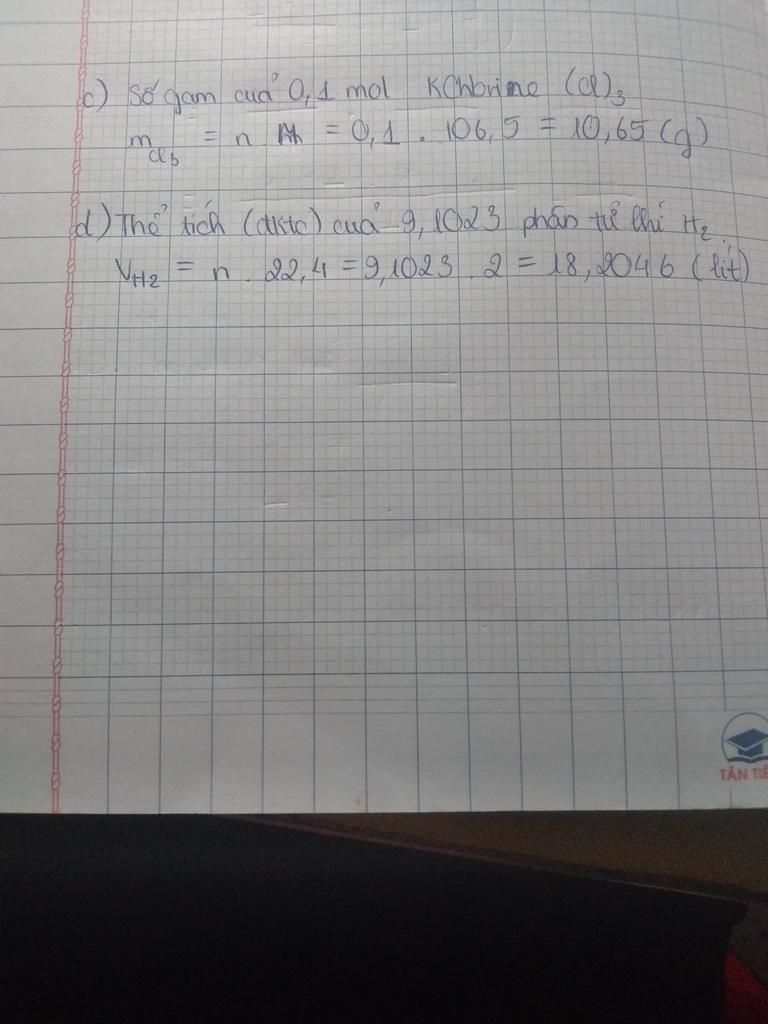 c) Số gam cuả 0,1 mol KChlorine (Cl)3
mCl3 = n M = 0,1 . 106,5 = 10,65 (g)
d) Thể tích (đktc) cuả 9,1023 phân tử khí H2
VH2 = n . 22,4 = 9,1023 . 2 = 18,2046 (lít)
TÂN TIẾ